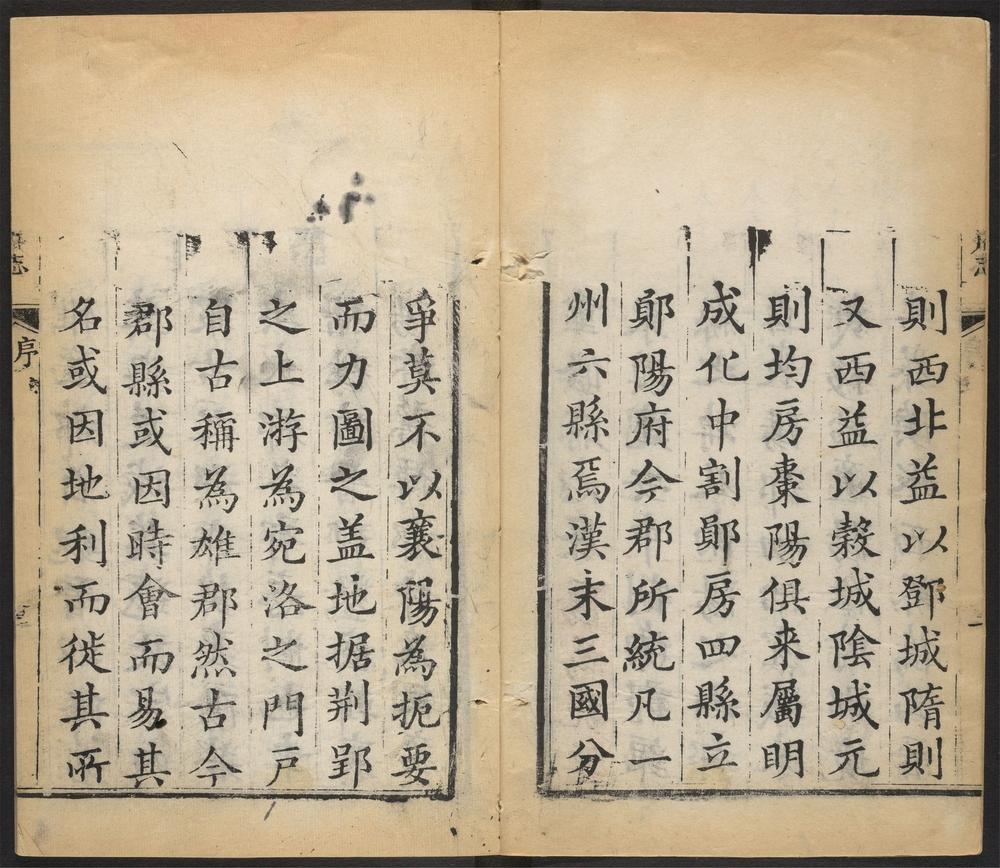 則西北益以鄧城隋則
又西益以穀城陰城元
則均房棗陽俱来屬明
成化中割鄖房四縣立
鄖陽府今郡所統凡一
州六縣焉漢末三國分
爭莫不以襄陽為扼要
而力圖之盖地据荆郢
之上游為宛洛之門戶
自古稱為雄郡然古今
郡縣或因時會而易其
名或因地利而徙其所
志
序